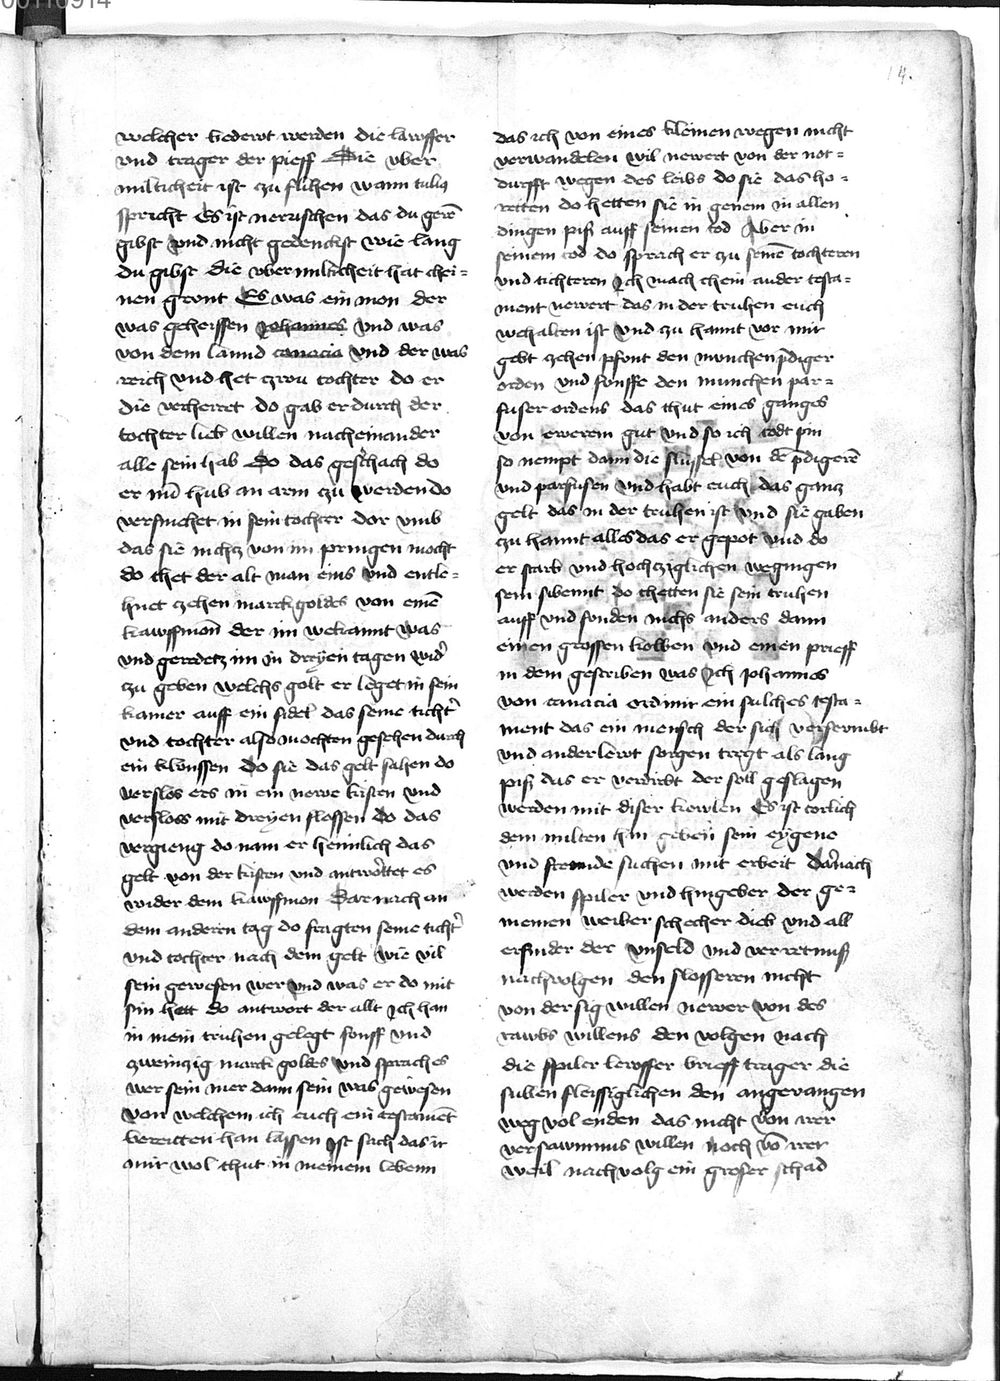 00110914
14.
welcher bedewt werden die lawffer
vnd trager der prieff Die vber
milticheit ist zu flihen wann tulius
spricht Es ist nerrischen das du gerē
gibst vnd nicht gedenckst wie lang
du gibst die vbermilticheit hat chei=
nen grunt Es was ein mon der
was geheissen Johannes vnd was
von dem lannd canacia vnd der was
reich vnd het zwu tochter do er
die verherret do gab er durch der
tochter lieb willen nacheinander
alle sein hab Do das geschach do
er nu hub an arm zu werden do
versmehet in sein tochter dor vmb
das sie nichz von im pringen mocht
do thet der alt man eins vnd entle=
hnet zehen marck goldes von einē
kawffmon der im wekannt was
vnd geredetz im in dreyen tagen wider
zu geben welchs golt er leget in sein
kamer auff ein sidel das seine tichter
vnd tochter also mochten gesehen durch
ein klunssen Do sie das gelt sahen do
verslos ers in ein newe kisten vnd
versloss mit dreyen slossen Do das
vergieng do nam er heimlich das
gelt von der kisten vnd antwortet es
wider dem kawffmon Darnach an
dem anderen tag do fragten seine tichter
vnd tochter nach dem gelt wie vil
sein gewesen wer vnd was er do mit
sin hett do antwort der allt Ich han
in mein truhen gelegt funff vnd
zweinzig marck goldes vnd sprach es
wer sein mer dann sein was gewesen
von welchem ich euch ein testamēt
bereitten han lassen Ist sach das ir
mir wol thut in meinem lebenn
das ich von eines kleinen wegen nicht
verwandelen wil newert von der not=
durfft wegen des leibs do sie das ho=
retten do hetten sie in genem in allen
dingen piss auff seinen tod Aber in
seinem tod do sprach er zu seinē tochteren
vnd tichteren Ich mach chein ander testa=
ment newert das in der truhen euch
wehalten ist vnd zu hannt vor mir
gebt zehen pfunt den munchen pdiger
orden vnd funffe den munchen par=
fuser ordens das thut eines ganges
von ewerem gut vnd so ich todt pin
so nempt dann die slussel von dē pdigerē
vnd parfusen vnd habt euch das ganz
gelt das in der truhen ist vnd sie gaben
zu hannt alles das er gepot vnd do
er starb vnd hochziglichen wegingen
sein sibennt do thetten sie sein truhen
auff vnd funden nichs anders dann
einen grossen kolben vnd einen prieff
in dem geschriben was Ich Johannes
von canacia ordinir ein sulches testa=
ment das ein mensch der sich versewmbt
vnd ander lewt sorgen tregt als lang
piss das er verdirbt der soll geslagen
werden mit diser kewlen Es ist torlich
dem milten hin geben sein eygene
vnd fremde suchen mit erbeit Darnach
werden spiler vnd hingeber der ge=
meinen weiber schecher dieb vnd all
erfinder der vnseld vnd verretniss
nachvolgen den slosseren nicht
von der sig willen newer von des
rawbs willens den volgen nach
die spiler lewffer brieff trager die
sullen fleissiglichen den angevangen
weg vol enden das nicht von irer
versawmnis willen noch vō irer
weil nachvolg ein groser schad